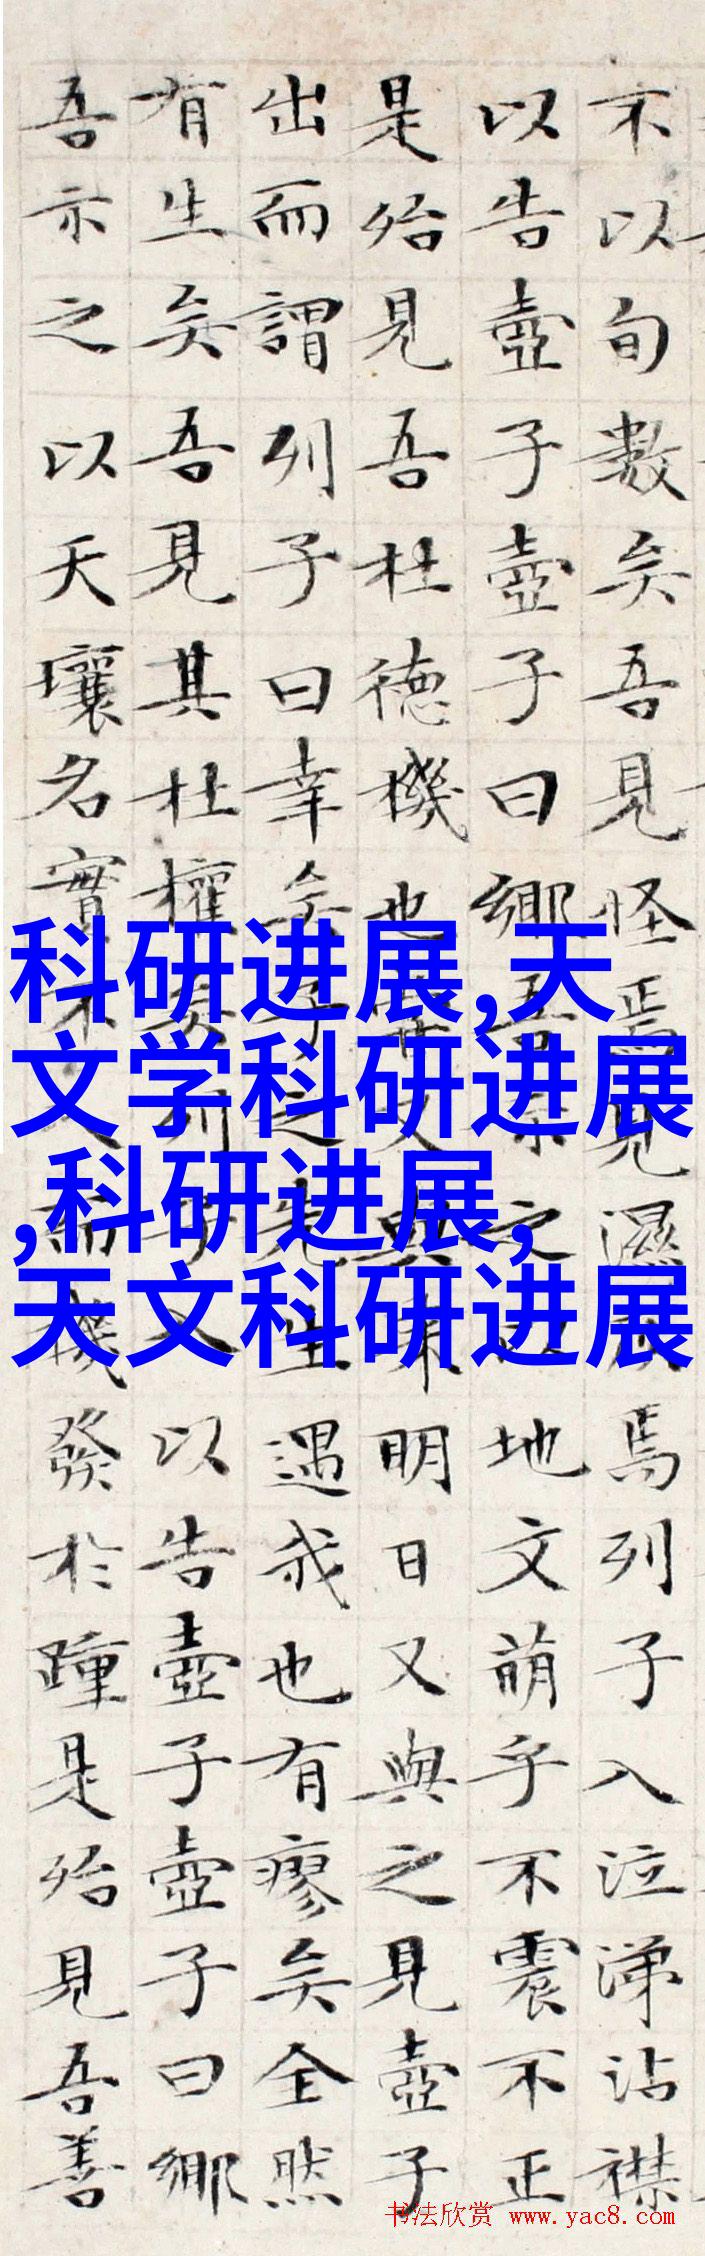 不以旬數矣吾見怪焉見濕灰焉列子入泣涕沾襟
以告壺子壺子曰鄉吾示之以地文萌乎不震不正
是殆見吾杜德機也嘗又與來明日又與之見壺子
出而謂列子曰幸矣子之先生遇我也有瘳矣全然
有生矣吾見其杜權矣列子入以告壺子壺子曰鄉
吾示之以天壤名實不入而機發於踵是殆見吾善
科研进展,天
文学科研进展
,科研进展,
天文科研进展
书法欣赏 www.yac8.com